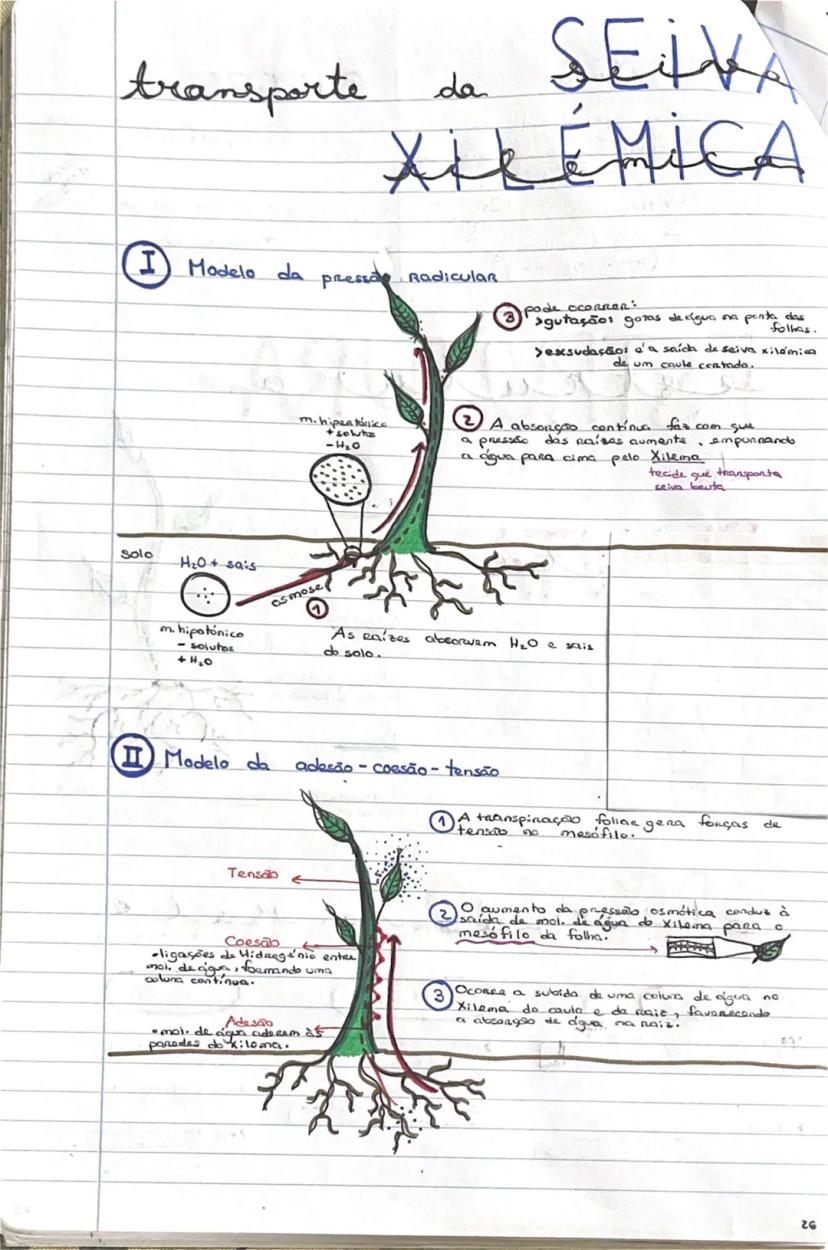 transporte da SEIVA
seiva
XILÉMICA
xilémica
I Modelo da pressão RADICULAR
3 pode ocorrer:
>gutação: gotas de água na ponta das
folhas.
>exsudação: é a saída de seiva xilémica
de um caule cortado.
m. hipertónico
+ solutos
- H₂O
2 A absorção contínua faz com que
a pressão das raízes aumente, empurrando
a água para cima pelo Xilema
tecido que transporta
seiva bruta
solo
H₂O + sais
osmose
1
m. hipotónico
- solutos
+ H₂O
As raízes absorvem H₂O e sais
do solo.
II Modelo da adesão-coesão-tensão
1 A transpiração foliar gera forças de
tensão no mesófilo.
Tensão
2 O aumento da pressão osmótica conduz à
saída de mol. de água do xilema para o
mesófilo da folha.
Coesão
•ligações de Hidrogénio entre
mol. de água, formando uma
coluna contínua.
3 Ocorre a subida de uma coluna de água no
xilema do caule e da raiz, favorecendo
a absorção de água na raiz.
Adesão
•mol. de água aderem às
paredes do xilema.
26